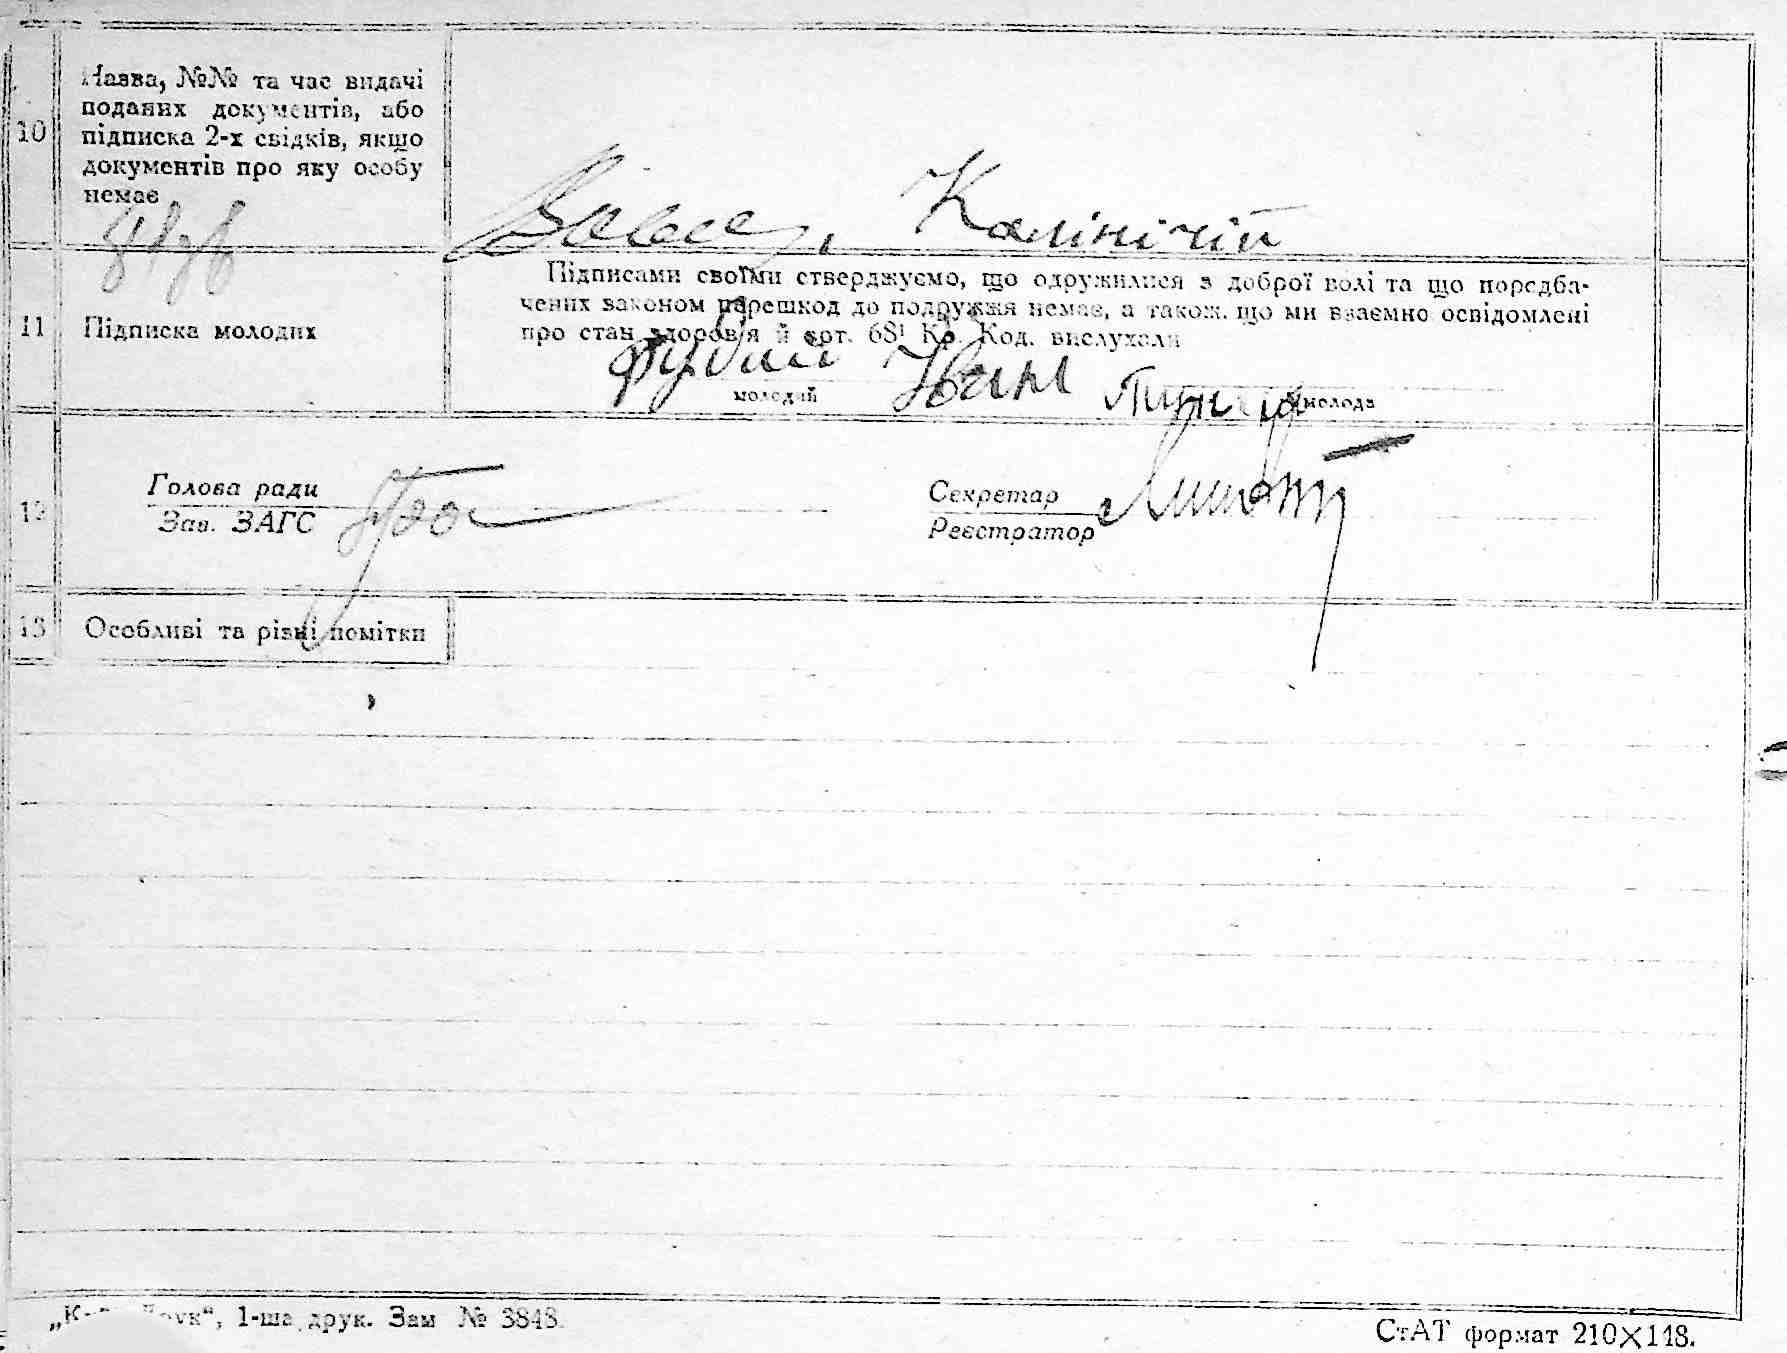 10
Назва, №№ та час видачі
поданих документів, або
підписка 2-х свідків, якщо
документів про яку особу
немає
Калінічій
11
Підписка молодих
Підписами своїми стверджуємо, що одружилися з доброї волі та що передба-
чених законом перешкод до подружжя немає, а також, що ми взаємно освідомлені
про стан здоров'я й арт. 68¹ Кр. Код. вислухали
Рудий Іван
молодий
молода
12
Голова ради
Зав. ЗАГС
Секретар
Реєстратор
13
Особливі та різні помітки
1-ша друк. Зам № 3848.
СтАТ формат 210×148.